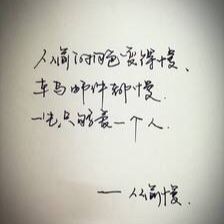 从前的日色变得慢、
车马邮件都慢.
一生只够爱一个人.
—— 从前慢.